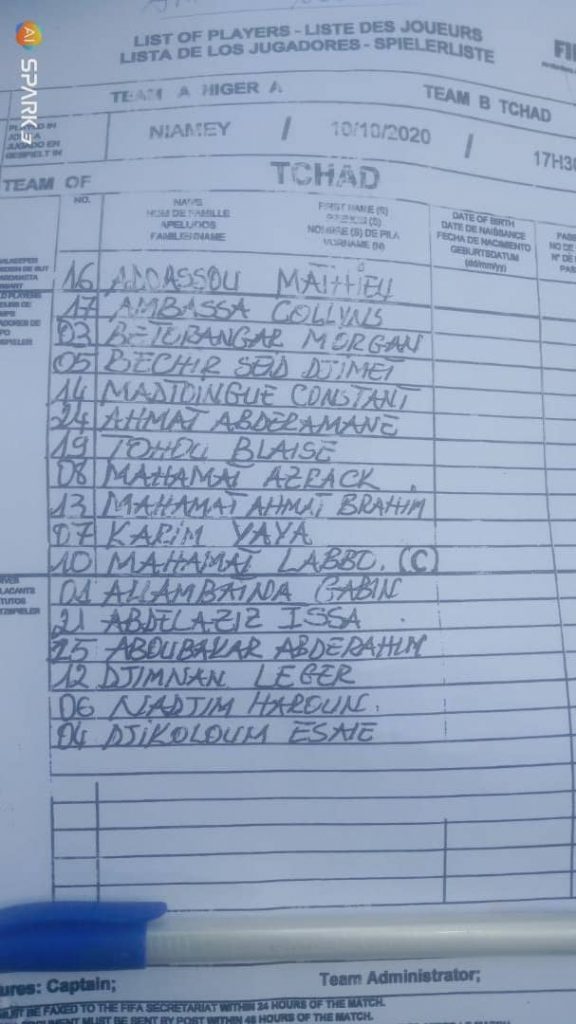 AI SPARK
LIST OF PLAYERS - LISTE DES JOUEURS
LISTA DE LOS JUGADORES - SPIELERLISTE
TEAM A NIGER A
TEAM B TCHAD
NIAMEY / 10/10/2020 / 17H30
TEAM OF TCHAD
NO.
NAME
NOM DE FAMILLE
APELLIDOS
FAMILIENNAME
FIRST NAME (S)
NOMBRE (S) DE PILA
VORNAME (N)
DATE OF BIRTH
DATE DE NAISSANCE
FECHA DE NACIMIENTO
GEBURTSDATUM
(dd/mm/yy)
16 ADOASSOU MATHIEU
17 AMBASSA COLLYNS
03 BETOBANGAR MORGAN
05 BECHIR SEID DJIMET
14 MADTOINGUE CONSTANT
24 AHMAT ABDERAMANE
19 TOHOU BLAISE
08 MAHAMAT AZRACK.
13 MAHAMAT AHMAT BRAHIM
07 KARIM YAYA
10 MAHAMAT LABBO. (C)
01 ALLAMBATNA GABIN
21 ABDELAZIZ ISSA
25 ABOUBAKAR ABDERAHIM
12 DJIMNAN LEGER
06 NIADJIM HAROUN.
04 DJIKOLOUM ESAIE
ures: Captain;
Team Administrator;
MUST BE FAXED TO THE FIFA SECRETARIAT WITHIN 24 HOURS OF THE MATCH.
MUST BE SENT BY POST WITHIN 48 HOURS OF THE MATCH.